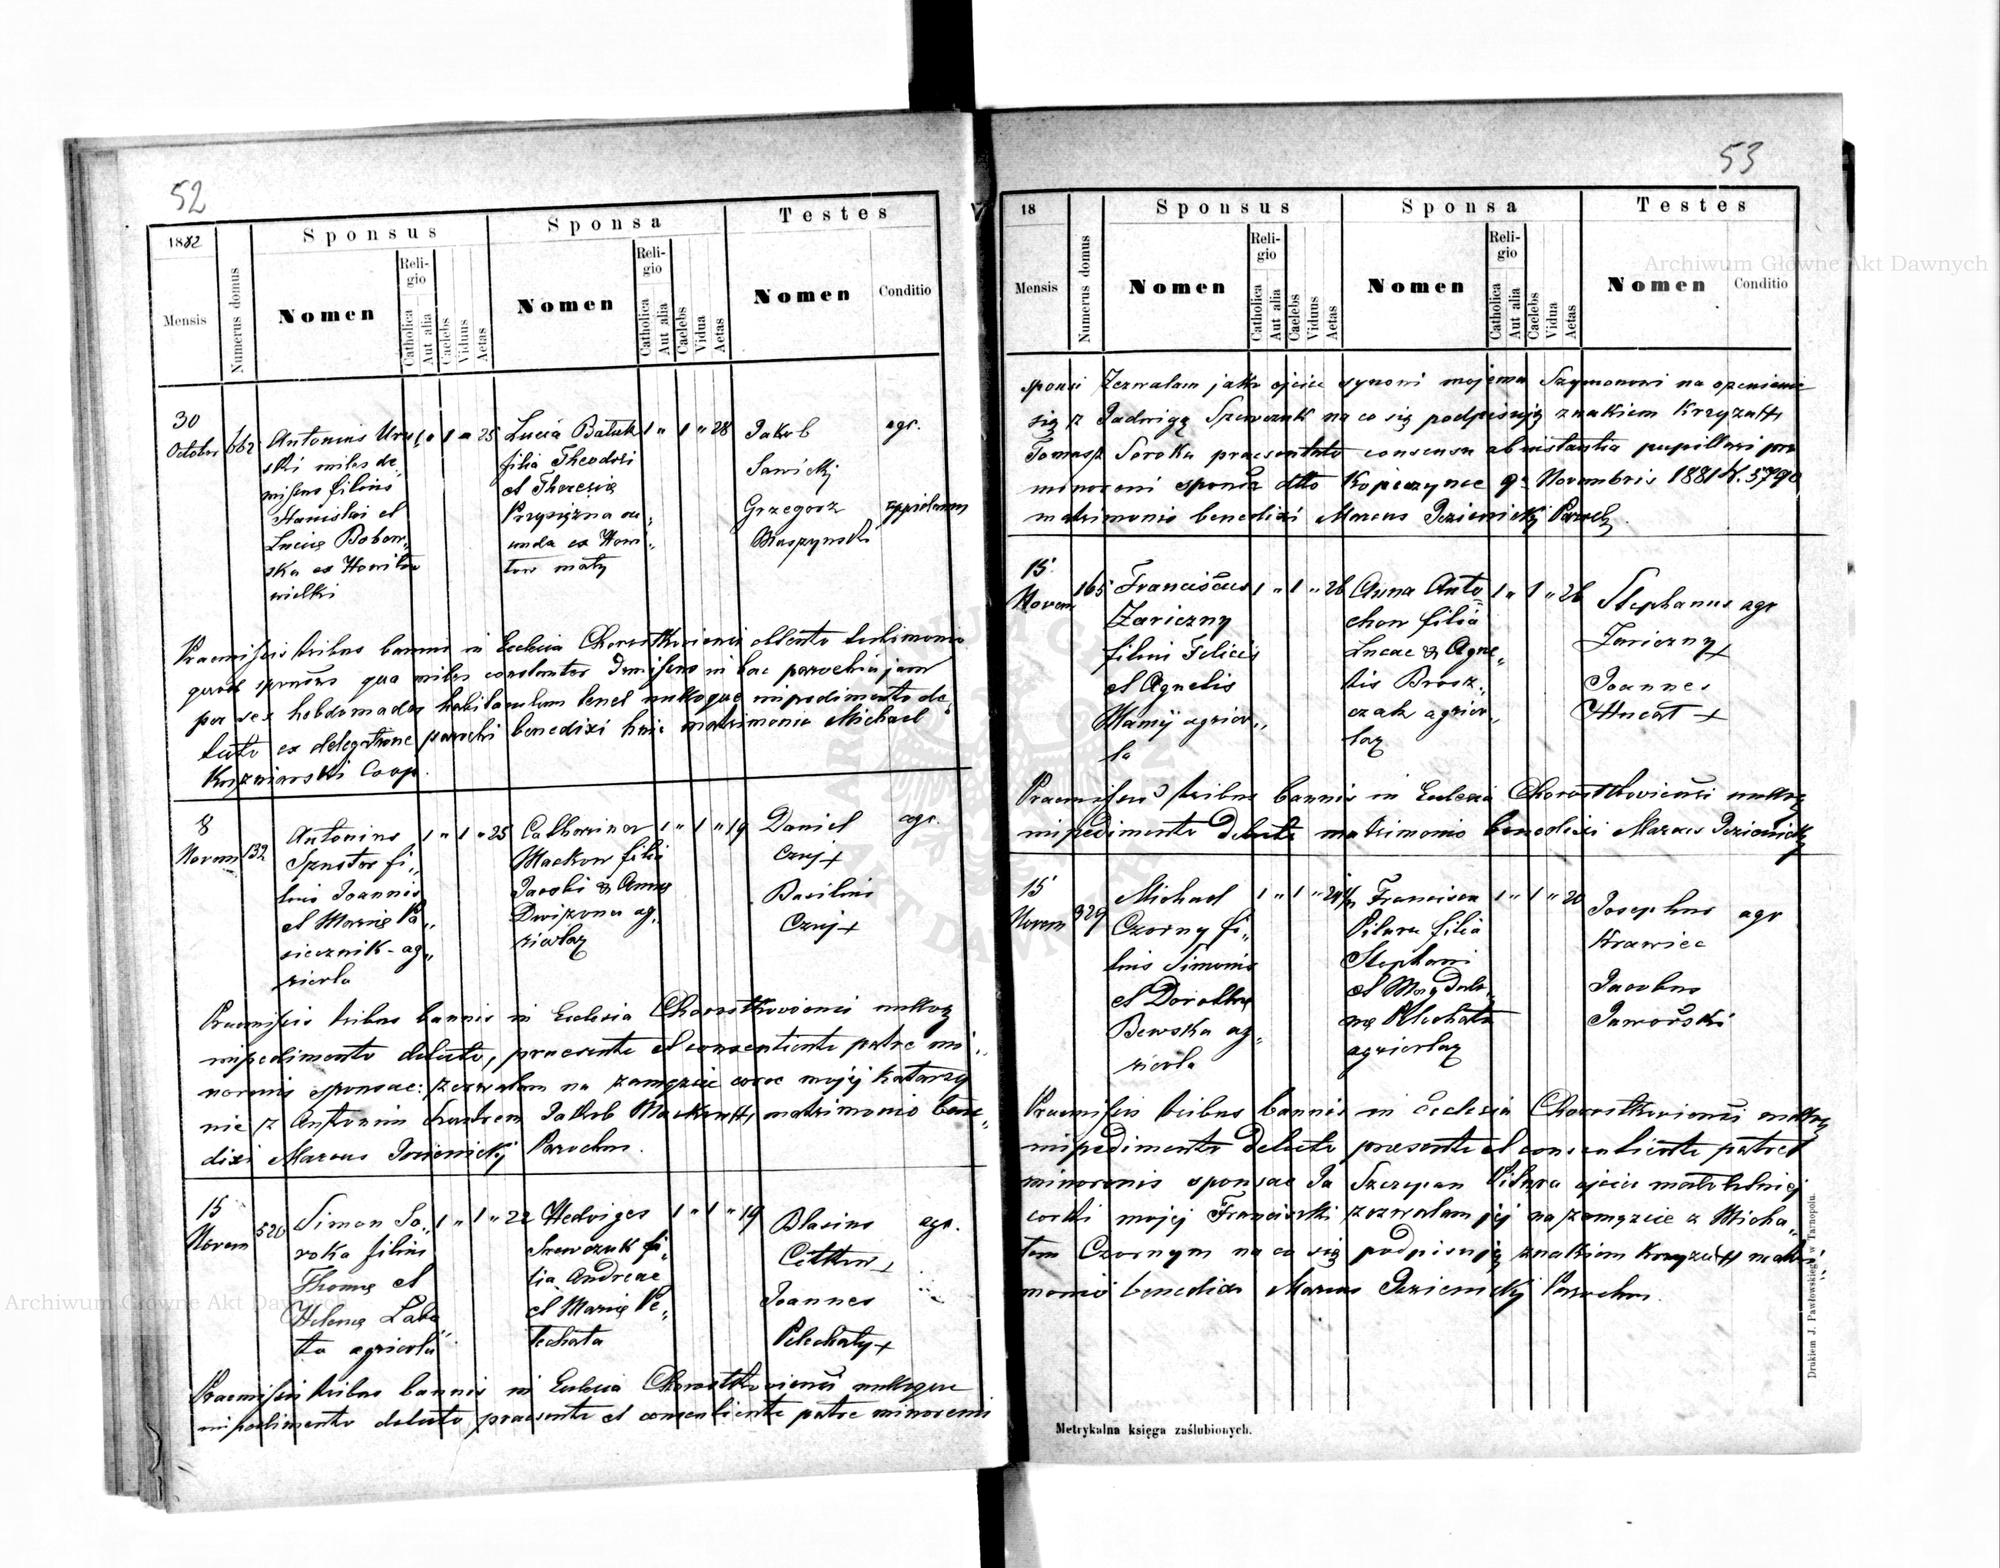 52
1882
Sponsus
Sponsa
Testes
Mensis
Numerus domus
Nomen
Religio
Catholica
Aut alia
Caelebs
Viduus
Aetas
Nomen
Religio
Catholica
Aut alia
Caelebs
Vidua
Aetas
Nomen
Conditio
30
October
662
Antonius
miles de,,
missus filius
Stanislai et
Lucię Bobow,,
ska ex Howiłow
wielki
1 " 1 " 25
Lucia Batuk
filia Theodori
et Theresię
Przysiężna
ex Howi,,
łow mały
1 " 1 " 28
Jakob
Sawicki
Grzegorz
agr.
Praemissis tribus bannis in Ecclesia Chorostkoviensi obtento testimonio
quod sponsus qua miles constanter in hac parochia jam
per sex hebdomadas habitaculum tenet nulloque impedimento de,,
tecto ex delegatione parochi benedixi huic matrimonio Michael
Coop.
8
Novem
132
Antonius
filius Joannis
et Marię Pa,,
siecznik - ag,,
ricola
1 " 1 " 25
Catharina
Maćkow filia
Jacobi & Annę
ag,,
ricolaz
1 " 1 " 19
Daniel
Czuj +
Basilius
Czuj +
agr.
Praemissis tribus bannis in Ecclesia Chorostkoviensi nulloq
impedimento detecto, praesente et consentiente patre mi,,
norennis sponsae: zezwalam na zamęzcie corce mojej Katarzy
nie z Antonim Jakob matrimonio bene,,
dixi Marcus Parochus.
15
Novem
520
Simon So,,
roka filius
Thomę et
Helenę Łabę
ta agricola
1 " 1 " 22
Hedviges
Szewczuk fi,,
lia Andreae
et Marię Pe,,
lechata
1 " 1 " 19
Blasius
+
Joannes
Pelechaty +
agr.
Praemissis tribus bannis in Ecclesia Chorostkoviensi nulloque
impedimento detecto praesente et consentiente patre minorenni
53
18
Sponsus
Sponsa
Testes
Mensis
Numerus domus
Nomen
Religio
Catholica
Aut alia
Caelebs
Viduus
Aetas
Nomen
Religio
Catholica
Aut alia
Caelebs
Vidua
Aetas
Nomen
Conditio
sponsi Zezwalam jako ojciec synowi mojemu Szymonowi na ozenienie
się z Jadwigą Szewczuk na co się podpisuję znakiem Krzyza
Tomasz Soroka praesentato consensu ab instantia pupillari pro
minorenni sponsa dtto Kopiczynce 9 Novembris 1881 N. 5790
matrimonio benedixi Marcus Paroch.
15
Novem
165
Franciscus
Zariczny
filius Felicis
et Agnetis
agrico,,
la
1 " 1 " 26
Anna Anto
chow filia
Lucae & Agne,,
tis
agrico,,
laz
1 " 1 " 26
Stephanus
Zariczny +
Joannes
+
agr
Praemissis tribus bannis in Ecclesia Chorostkoviensi nulloq
impedimento detecto matrimonio benedixi Marcus
15
Novem
329
Michael
Czorny fi,,
lius Simonis
et Dorothę
ag,,
ricola
Francisca
Pilara filia
Stephani
et Magdale,,
nę
agricolaz
1 " 1 " 20
Josephus
Krawiec
Jacobus
Jaworski
agr
Praemissis tribus bannis in Ecclesia Chorostkoviensi nulloq
impedimento detecto praesente et consentiente patre
minorenis sponsae Ja Szczepan Pilara ojciec małoletniej
corki mojej Franciszki zezwalam jej na zamęzcie z Micha,,
łem Czornym na co się podpisuję znakiem Krzyza matri,,
monio benedixi Marcus Parochus.
Metrykalna księga zaślubionych.
Drukiem J. Pawłowskiego w Tarnopolu.
Archiwum Główne Akt Dawnych
Archiwum Główne Akt Dawnych